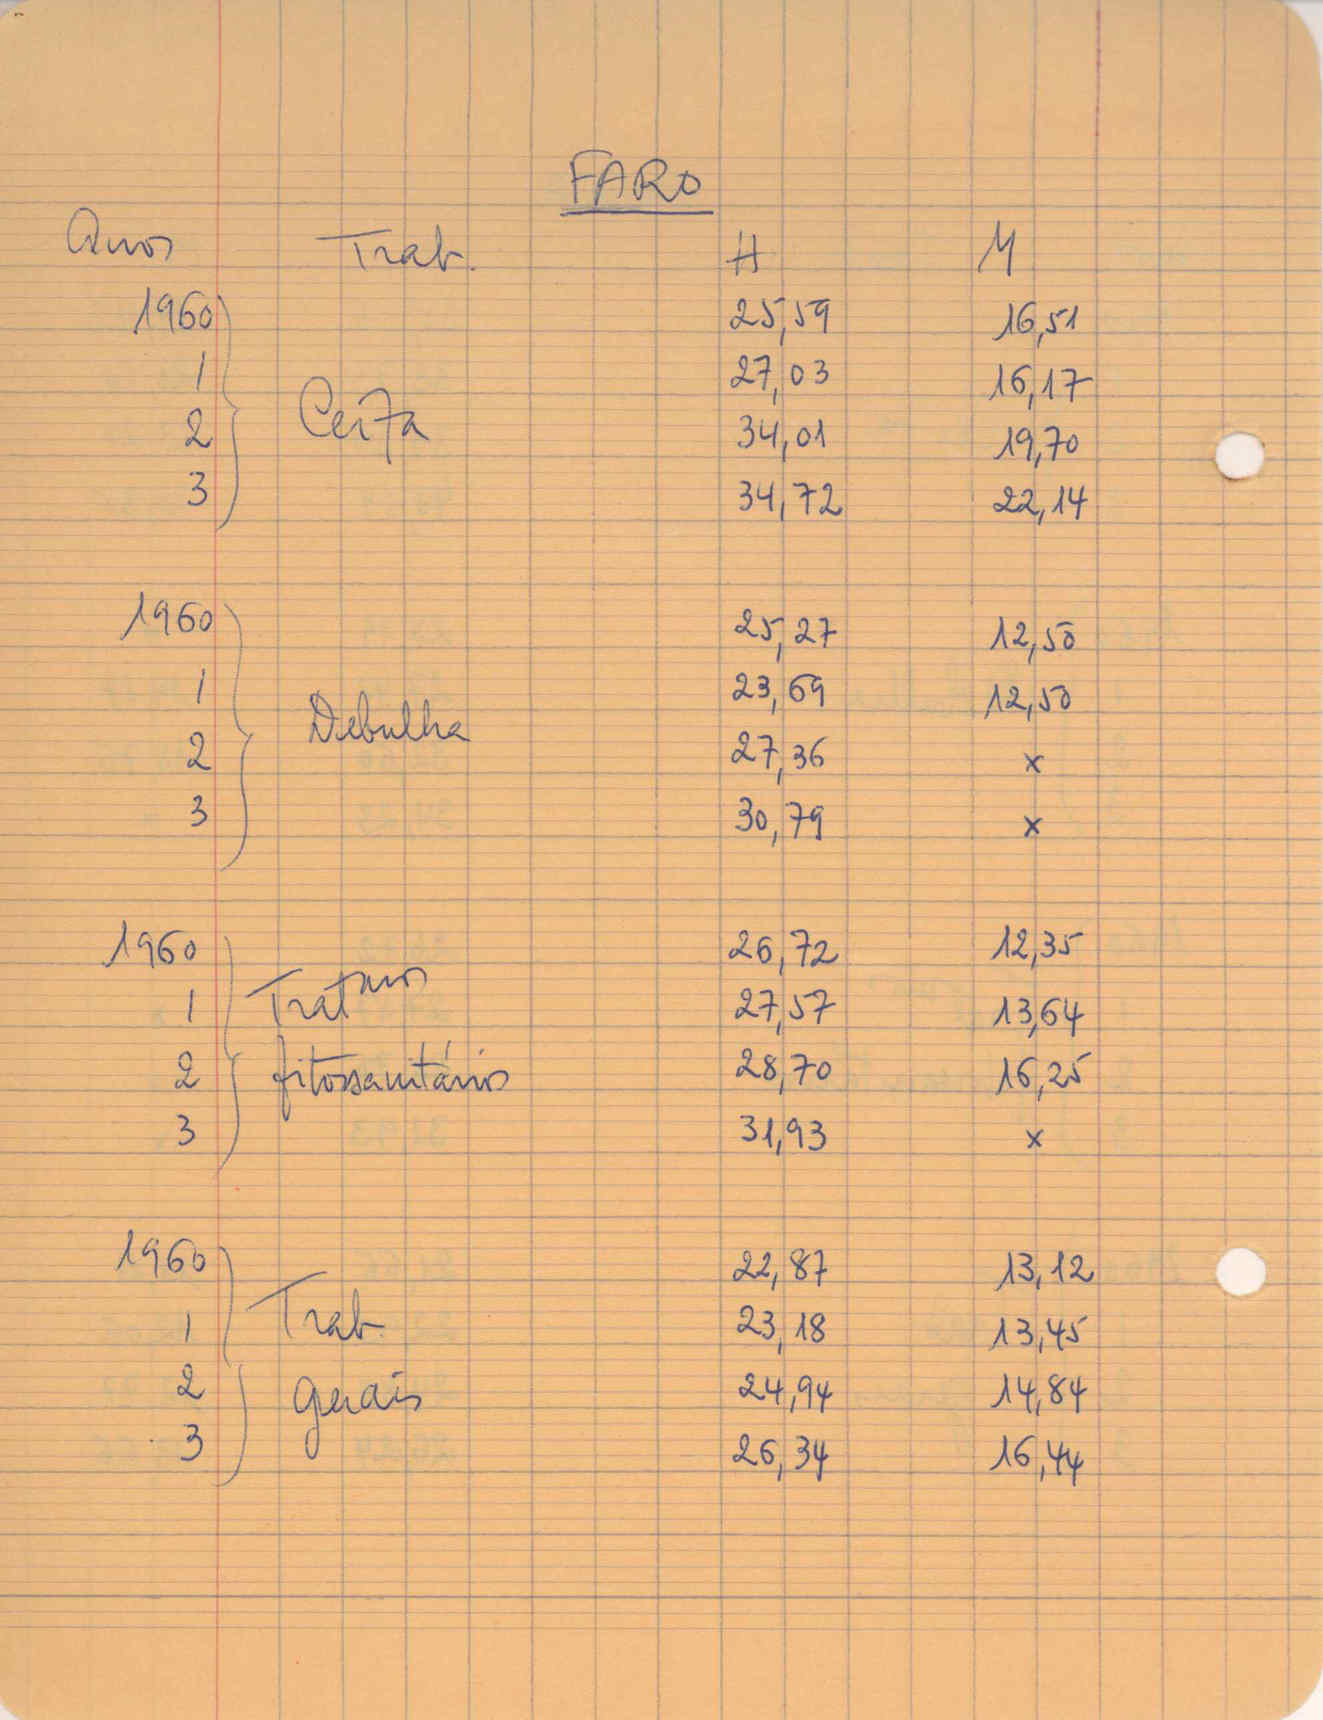 FARO
Anos Trab. H M
1960 25,59 16,51
1 27,03 16,17
2 Ceifa 34,01 19,70
3 34,72 22,14
1960 25,27 12,50
1 23,69 12,50
2 Debulha 27,36 x
3 30,79 x
1960 26,72 12,35
1 Tratmos 27,57 13,64
2 fitossanitários 28,70 16,25
3 31,93 x
1960 22,87 13,12
1 Trab. 23,18 13,45
2 gerais 24,94 14,84
3 26,34 16,44